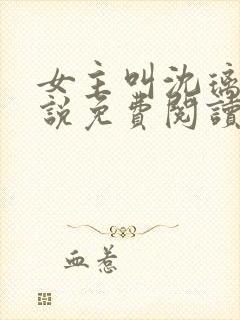 女主叫沈璃
說免費閱讀
血惹